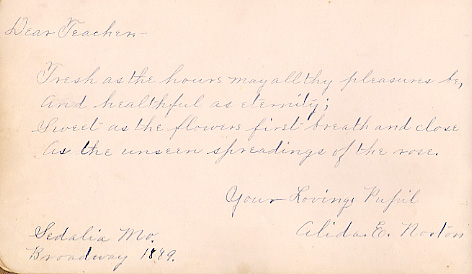 Dear Teacher-
Fresh as the hours may all thy pleasures be,
And healthful as eternity;
Sweet as the flowers first breath and close
As the unseen spreadings of the rose.
Your Loving Pupil
Alida E. Norton
Sedalia Mo.
Broadway 1889.